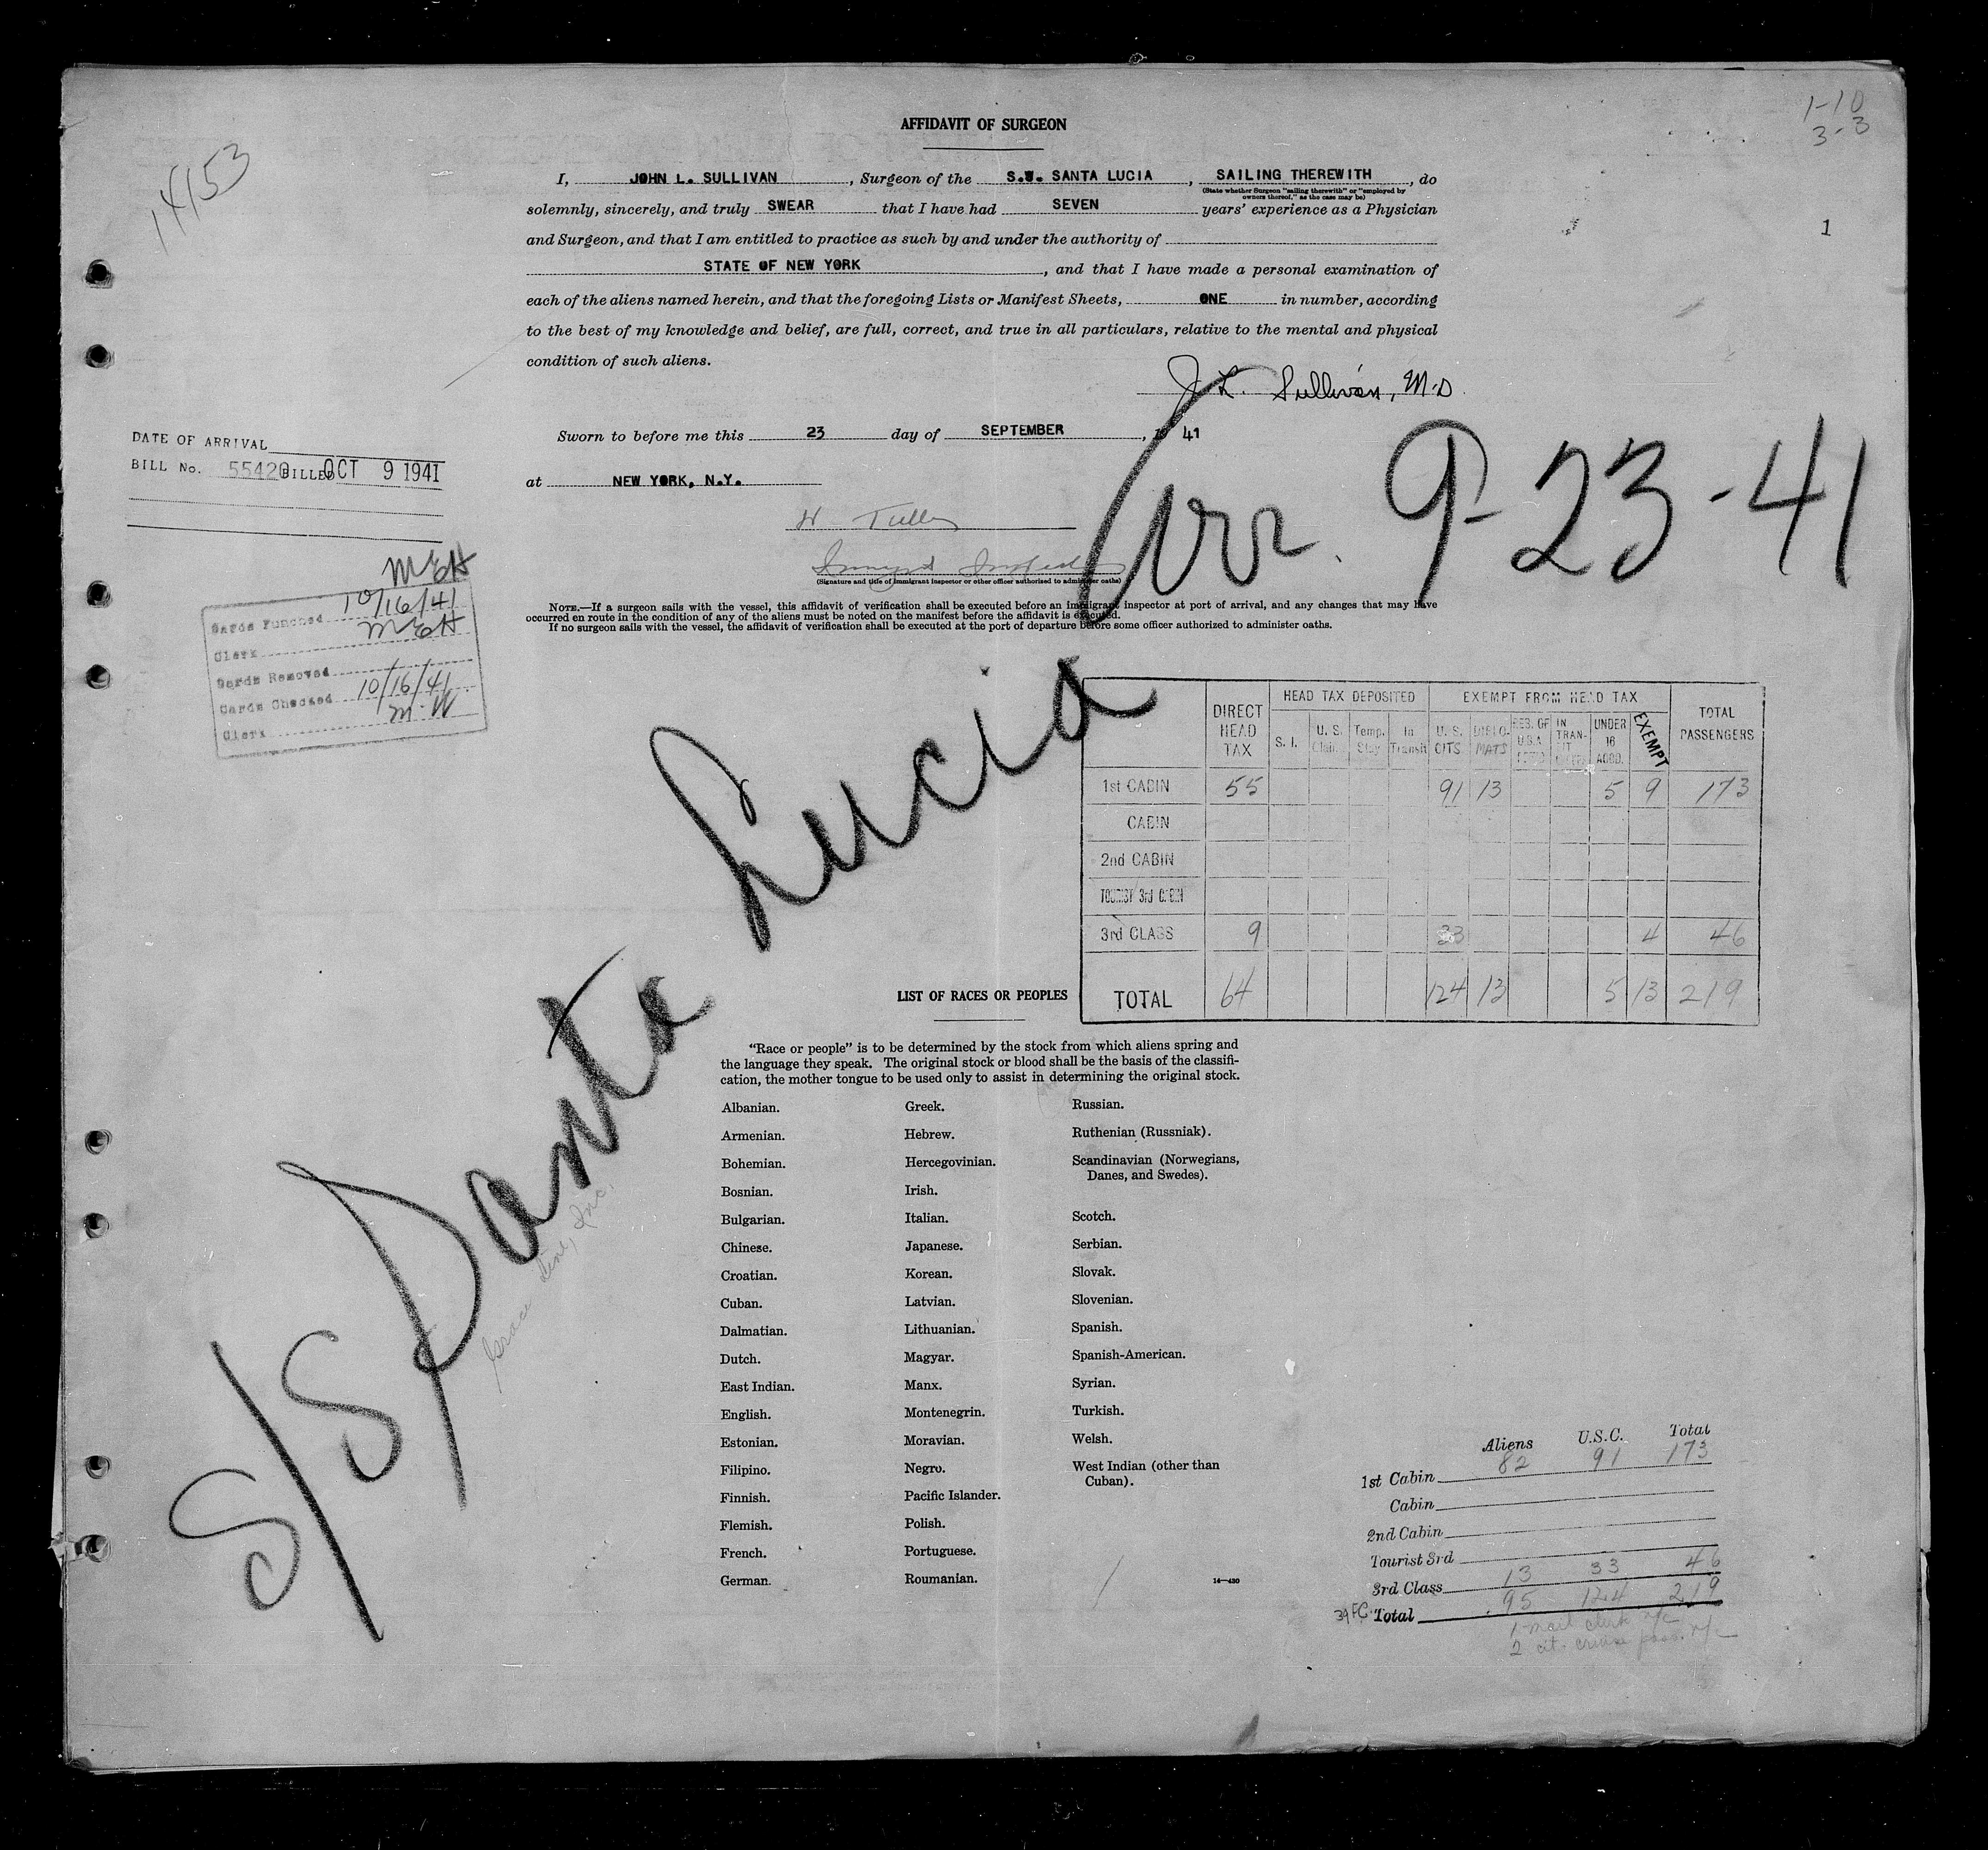 1-10
3-3
14153
1
AFFIDAVIT OF SURGEON
I, JOHN L. SULLIVAN, Surgeon of the S.S. SANTA LUCIA, SAILING THEREWITH, do
(State whether Surgeon "sailing therewith" or "employed by
owners thereof," as the case may be)
solemnly, sincerely, and truly SWEAR that I have had SEVEN years' experience as a Physician
and Surgeon, and that I am entitled to practice as such by and under the authority of
STATE OF NEW YORK, and that I have made a personal examination of
each of the aliens named herein, and that the foregoing Lists or Manifest Sheets, ONE in number, according
to the best of my knowledge and belief, are full, correct, and true in all particulars, relative to the mental and physical
condition of such aliens.
J. L. Sullivan, M.D
Sworn to before me this 23 day of SEPTEMBER, 41
at NEW YORK, N.Y.
Arr. 9-23-41
(Signature and title of immigrant inspector or other officer authorized to administer oaths)
NOTE.—If a surgeon sails with the vessel, this affidavit of verification shall be executed before an immigrant inspector at port of arrival, and any changes that may have
occurred en route in the condition of any of the aliens must be noted on the manifest before the affidavit is executed.
If no surgeon sails with the vessel, the affidavit of verification shall be executed at the port of departure before some officer authorized to administer oaths.
DATE OF ARRIVAL
BILL No. 55420 BILLED OCT 9 1941
MEH
Cards Punched 10/16/41
Clerk MEH
Cards Removed
Cards Checked 10/16/41
Clerk M.W
S/S Santa Lucia
Grace Line, Inc.
DIRECT HEAD TAX
HEAD TAX DEPOSITED
EXEMPT FROM HEAD TAX
TOTAL PASSENGERS
S. I. U. S. Claim. Temp. Stay In Transit U. S. CITS. DIPLO-MATS RES. OF U.S.A. IN TRAN-SIT UNDER 16 ACCD. EXEMPT
1st CABIN 55 91 13 5 9 173
CABIN
2nd CABIN
TOURIST 3rd CABIN
3rd CLASS 9 33 4 46
TOTAL 64 124 13 5 13 219
LIST OF RACES OR PEOPLES
"Race or people" is to be determined by the stock from which aliens spring and
the language they speak. The original stock or blood shall be the basis of the classifi-
cation, the mother tongue to be used only to assist in determining the original stock.
Albanian.
Armenian.
Bohemian.
Bosnian.
Bulgarian.
Chinese.
Croatian.
Cuban.
Dalmatian.
Dutch.
East Indian.
English.
Estonian.
Filipino.
Finnish.
Flemish.
French.
German.
Greek.
Hebrew.
Hercegovinian.
Irish.
Italian.
Japanese.
Korean.
Latvian.
Lithuanian.
Magyar.
Manx.
Montenegrin.
Moravian.
Negro.
Pacific Islander.
Polish.
Portuguese.
Roumanian.
Russian.
Ruthenian (Russniak).
Scandinavian (Norwegians,
Danes, and Swedes).
Scotch.
Serbian.
Slovak.
Slovenian.
Spanish.
Spanish-American.
Syrian.
Turkish.
Welsh.
West Indian (other than
Cuban).
14—430
Aliens U.S.C. Total
1st Cabin 82 91 173
Cabin
2nd Cabin
Tourist 3rd
3rd Class 13 33 46
39 FC Total 95 124 219
1 mail clerk n/c
2 cit. cruise pass. n/c